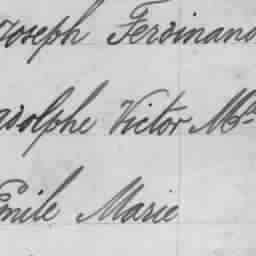 Joseph Ferdinand
Adolphe Victor Mie
Emile Marie